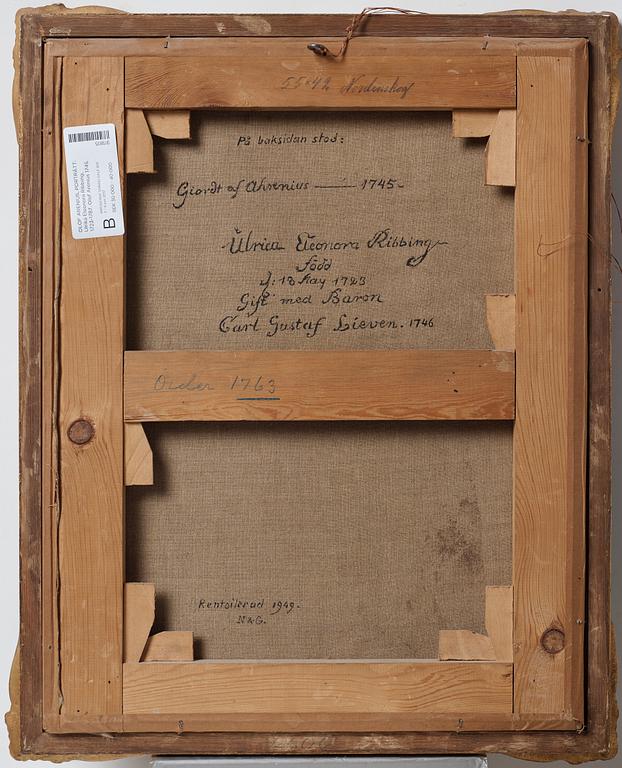 55×42 Nordenskog
På baksidan stod:
Giordt af Ahrenius — 1745-
Ulrica Eleonora Ribbing
född
d: 18 May 1723
Gift med Baron
Carl Gustaf Lieven. 1746
Order 1763
Rentoilerad 1949.
N&G.
OLOF ARENIUS, PORTRÄTT.
Ulrika Eleonora Ribbing,
1723-1787. Olof Arenius 1745.
B
SEK 30 000 - 40 000